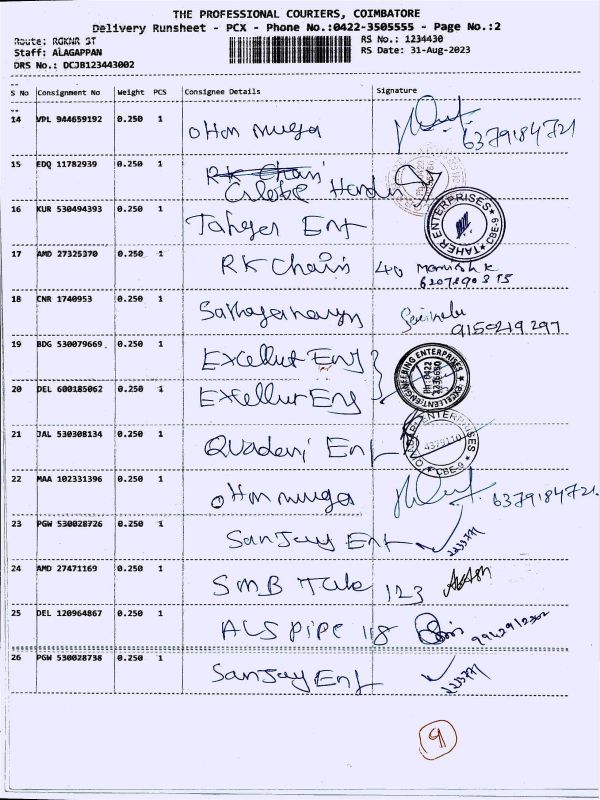 THE PROFESSIONAL COURIERS, COIMBATORE
Delivery Runsheet - PCX - Phone No.:0422-3505555 - Page No.:2
Route: RGKNR ST
RS No.: 1234430
Staff: ALAGAPPAN
RS Date: 31-Aug-2023
DRS No.: DCJB123443002
S No Consignment No Weight PCS Consignee Details Signature
14 VPL 944659192 0.250 1 6379184721
15 EDQ 11782939 0.250 1 RK Chain
16 KUR 530494393 0.250 1 Taher Ent TAHER ENTERPRISES CBE-9
17 AMD 27325370 0.250 1 RK Chain 40 Manish K
6207890815
18 CNR 1740953 0.250 1 9150219297
19 BDG 530079669 0.250 1 Excellent Eng EXCELLENT ENGINEERING ENTERPRISES PH:0422
20 DEL 600185062 0.250 1 Excellent Eng
21 JAL 530308134 0.250 1 Ent ENTERPRISES CBE-9
22 MAA 102331396 0.250 1 6379184721
23 PGW 530028726 0.250 1 Sanjay Ent
24 AMD 27471169 0.250 1 SMB Tube 123
25 DEL 120964867 0.250 1 ALS pipe 118
26 PGW 530028738 0.250 1 Sanjay Ent
9